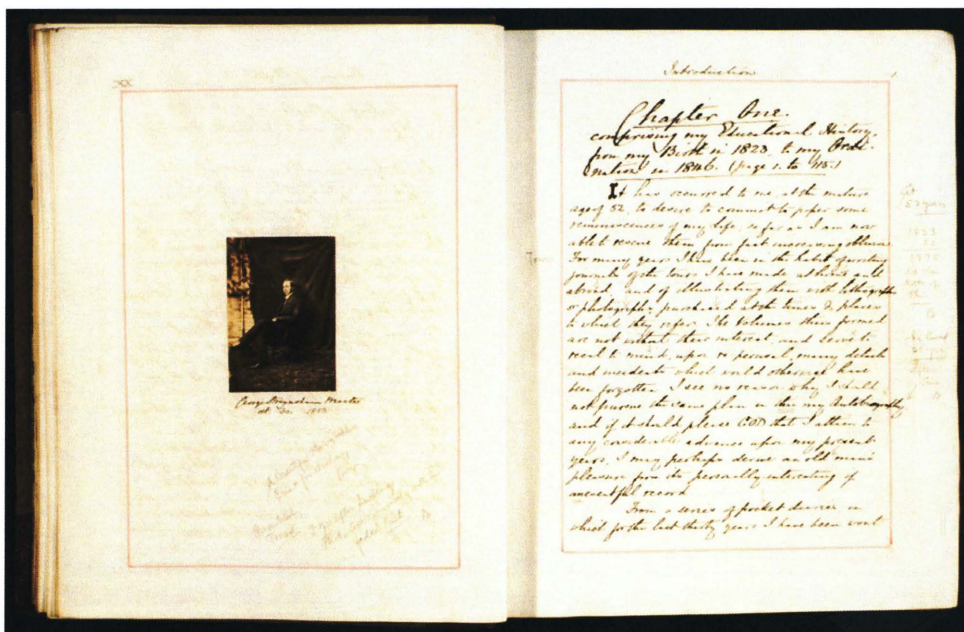 XX
George Bragadua Master
1853
Introduction
1
Chapter One.
comprising my Educational History,
from my Birth in 1823, to my Ordi-
nation in 1846. (page 1. to 115.)
It has occurred to me, at the mature
age of 52, to desire to commit to paper some
reminiscences of my life, so far as I am now
able to rescue them from fast increasing oblivion.
For many years I have been in the habit of writing
journals of the tours I have made at home and
abroad, and of illustrating them with lithographs
or photographs, purchased at the times & places
to which they refer. The Volumes thus formed
are not without their interest, and serve to
recal to mind, upon re perusal, many details
and incidents which would otherwise have
been forgotten. I see no reason why I should
not pursue the same plan in this my Autobiography,
and if it should please GOD that I attain to
any considerable advance upon my present
years, I may perhaps derive an old man's
pleasure from the personally interesting if
uneventful record.
From a series of pocket diaries in
which for the last thirty years I have been wont